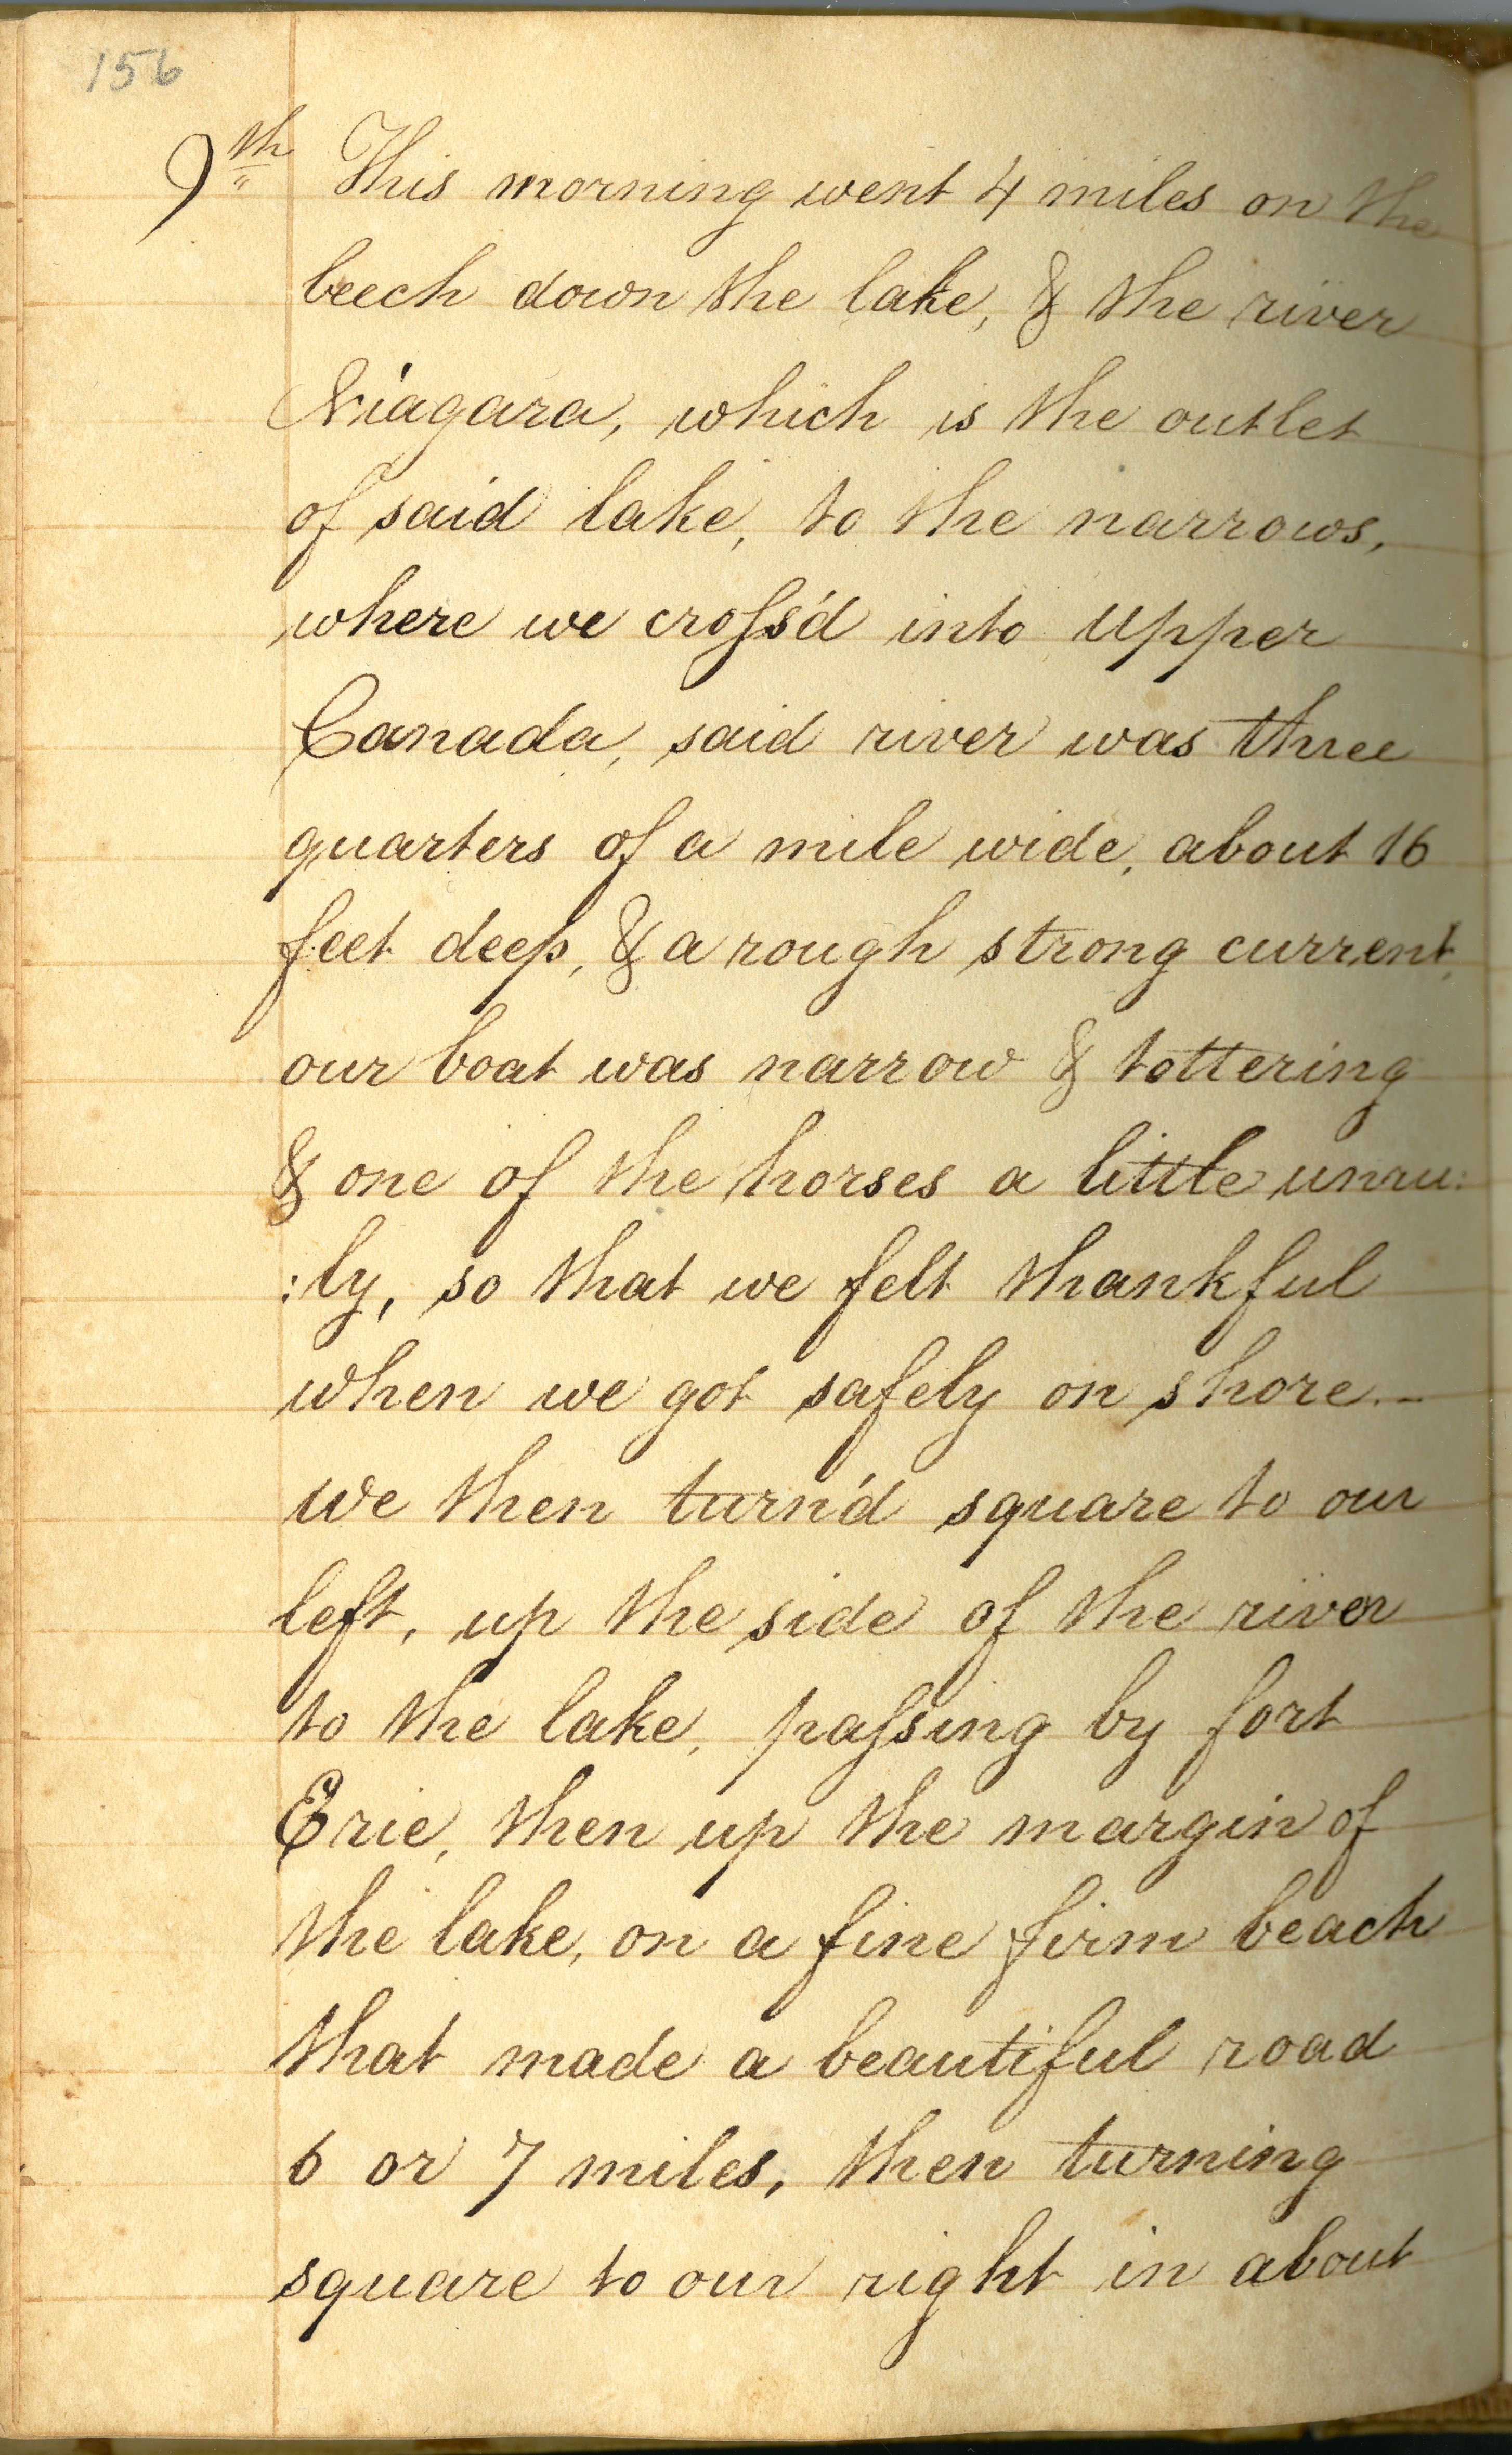 156
9th This morning went 4 miles on the
beech down the lake, & the river
Niagara, which is the outlet
of said lake, to the narrows,
where we croſs'd into Upper
Canada, said river was three
quarters of a mile wide, about 16
feet deep, & a rough strong current,
our boat was narrow & tottering
& one of the horses a little unru:
:ly, so that we felt thankful
when we got safely on shore.–
we then turn'd square to our
left, up the side of the river
to the lake, paſsing by fort
Erie, then up the margin of
the lake, on a fine firm beach
that made a beautiful road
6 or 7 miles, then turning
square to our right in about